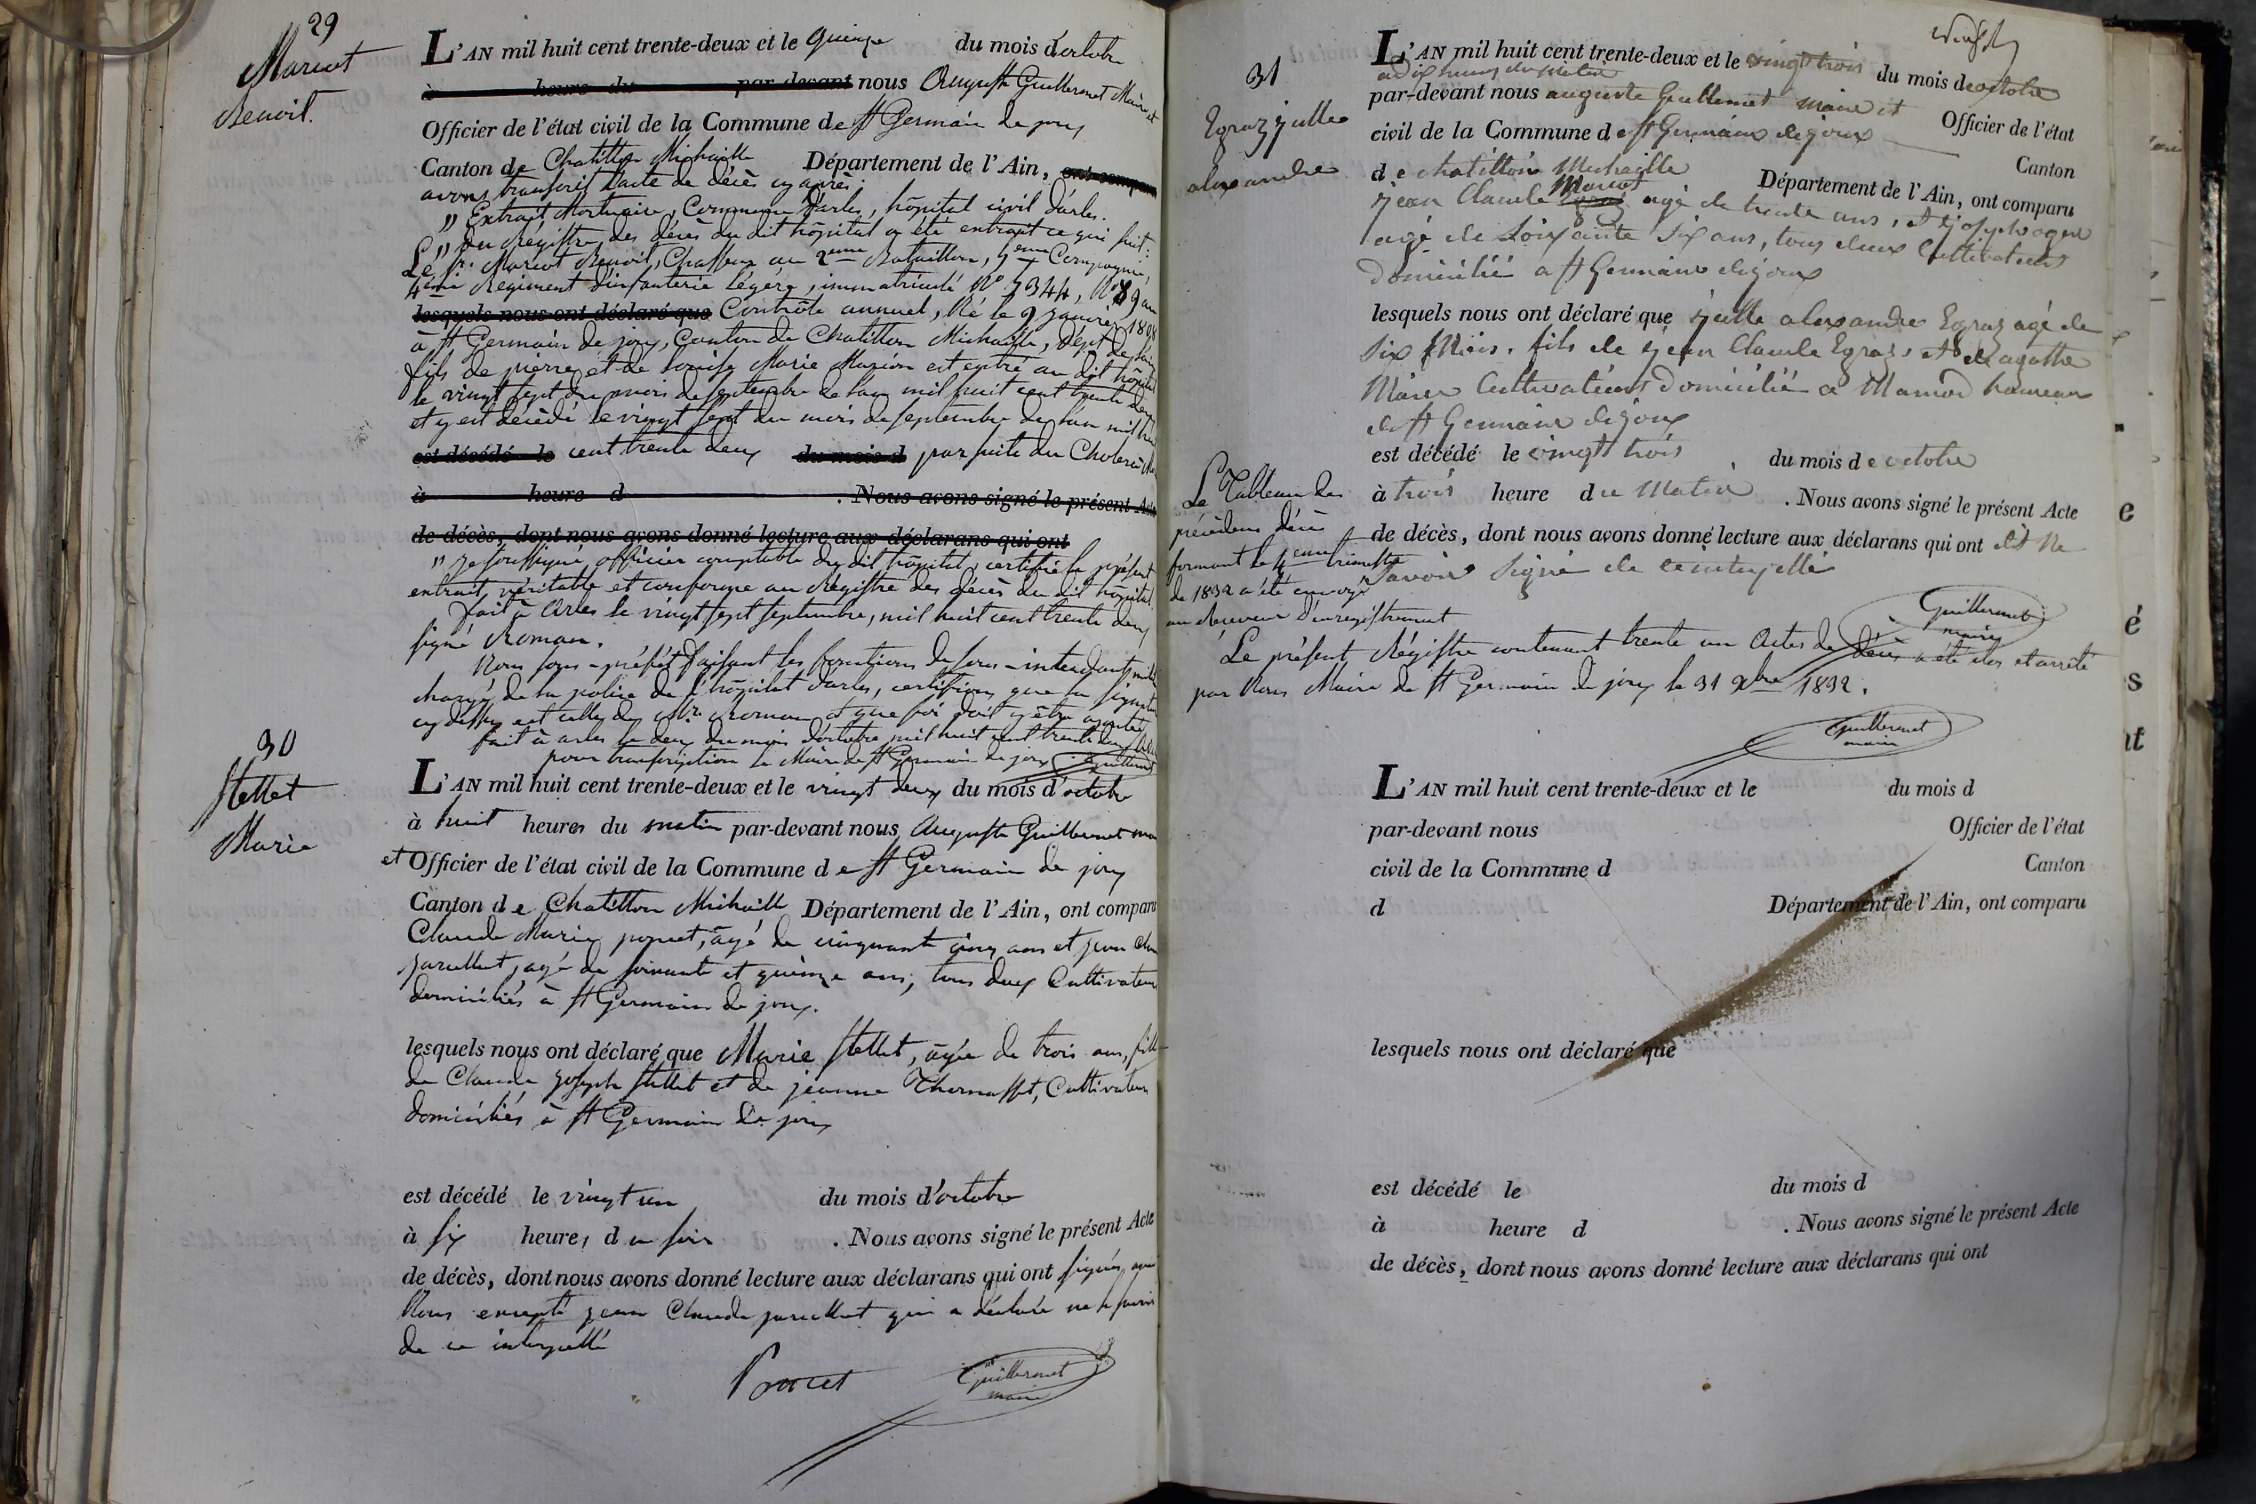 29
Mariot
Benoit.
L'AN mil huit cent trente-deux et le quinze du mois d'octobre
à heure du par-devant nous Auguste Guillermet Maire et
Officier de l'état civil de la Commune de St Germain de joux
Canton de Chatillon Michaille Département de l'Ain, ont comparu
avons transcrit l'acte de décès cy après;
" Extrait Mortuaire, Commune d'arles, hôpital civil d'arles.
" Du Régistre des décès du dit hôpital a été extrait ce qui suit:
Le Sr. Mariot Benoit, Chasseur au 2eme Bataillon, 5eme Compagnie,
4eme Régiment d'infanterie légère, immatriculé N° 5344,
lesquels nous ont déclaré que Contrôle annuel, Né le 9 janvier
à St Germain de joux, Canton de Chatillon Michaille, Dépt de l'ain
fils de pierre et de Louise Marie Marion est entré au dit hôpital
le vingt sept du mois de septembre de l'an mil huit cent trente deux
et y est décédé le vingt sept du mois de septembre de l'an mil huit
est décédé le cent trente deux du mois d par suite du Choléra
à heure d . Nous avons signé le présent Acte
de décès, dont nous avons donné lecture aux déclarans qui ont
" Je soussigné officier comptable du dit hôpital, certifie le présent
extrait véritable et conforme au Régistre des décès du dit hôpital.
fait à Arles le vingt sept septembre, mil huit cent trente deux
signé Roman.
Nous sous-préfet faisant les fonctions de sous-intendant
chargé de la police de l'hôpital d'arles, certifions que la signature
cy dessus est celle du Roman et que foi doit y être ajoutée
fait à arles le deux du mois d'octobre mil huit cent trente deux
pour transcription le Maire de St Germain de joux Guillermet
30
Stellet
Marie
L'AN mil huit cent trente-deux et le vingt deux du mois d'octobre
à huit heures du matin par-devant nous Auguste Guillermet
et Officier de l'état civil de la Commune de St Germain de joux
Canton de Chatillon Michaille Département de l'Ain, ont comparu
Claude Marie poncet, âgé de cinquante cinq ans et jean
, agé de soixante et quinze ans, tous deux Cultivateurs
domiciliés à St Germain de joux.
lesquels nous ont déclaré que Marie Stellet, âgée de trois ans, fille
de Claude Joseph Stellet et de jeanne Thomasset, Cultivateurs
domiciliés à St Germain de joux
est décédé le vingt un du mois d'octobre
à six heures du soir . Nous avons signé le présent Acte
de décès, dont nous avons donné lecture aux déclarans qui ont signés avec
Nous excepté jean Claude qui a déclaré ne le savoir
de ce interpellé
Poncet Guillermet
maire
31
Egraz julle
alexandre
L'AN mil huit cent trente-deux et le vingt trois du mois de octobre
a dix heures du matin
par-devant nous auguste Guillermet maire et Officier de l'état
civil de la Commune de St Germain de joux Canton
de chatillon Michaille Département de l'Ain, ont comparu
jean Claude Mariot agé de trente ans, et
agé de soixante six ans, tous deux Cultivateurs
Domicilié a St Germain de joux
lesquels nous ont déclaré que julle alexandre Egraz agé de
Six Mois. fils de jean Claude Egraz, et de agathe
Cultivateurs Domicilié a hameau
de St Germain de joux
est décédé le vingt trois du mois de octobre
à trois heure du Matin . Nous avons signé le présent Acte
de décès, dont nous avons donné lecture aux déclarans qui ont dit ne
Savoir Signé de ce interpellé
Guillermet
maire
Le Tableau des
précédens décès
formant le 4eme trimestre
de 1832 a été envoyé
au Receveur d'enregistrement
Le présent Régistre contenant trente un Actes de décès a été clos et arrêté
par Nous Maire de St Germain de joux le 31 Xbre 1832.
Guillermet
maire
L'AN mil huit cent trente-deux et le du mois d
par-devant nous Officier de l'état
civil de la Commune d Canton
d Département de l'Ain, ont comparu
lesquels nous ont déclaré que
est décédé le du mois d
à heure d . Nous avons signé le présent Acte
de décès, dont nous avons donné lecture aux déclarans qui ont